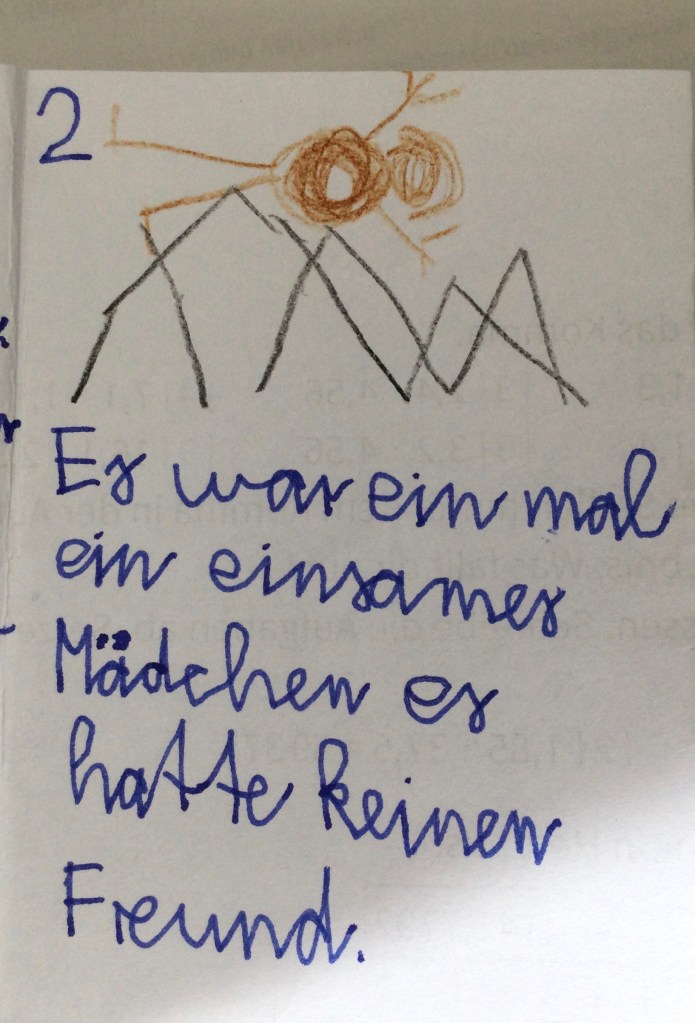 2
Es war ein mal
ein einsames
Mädchen es
hatte keinen
Freund.